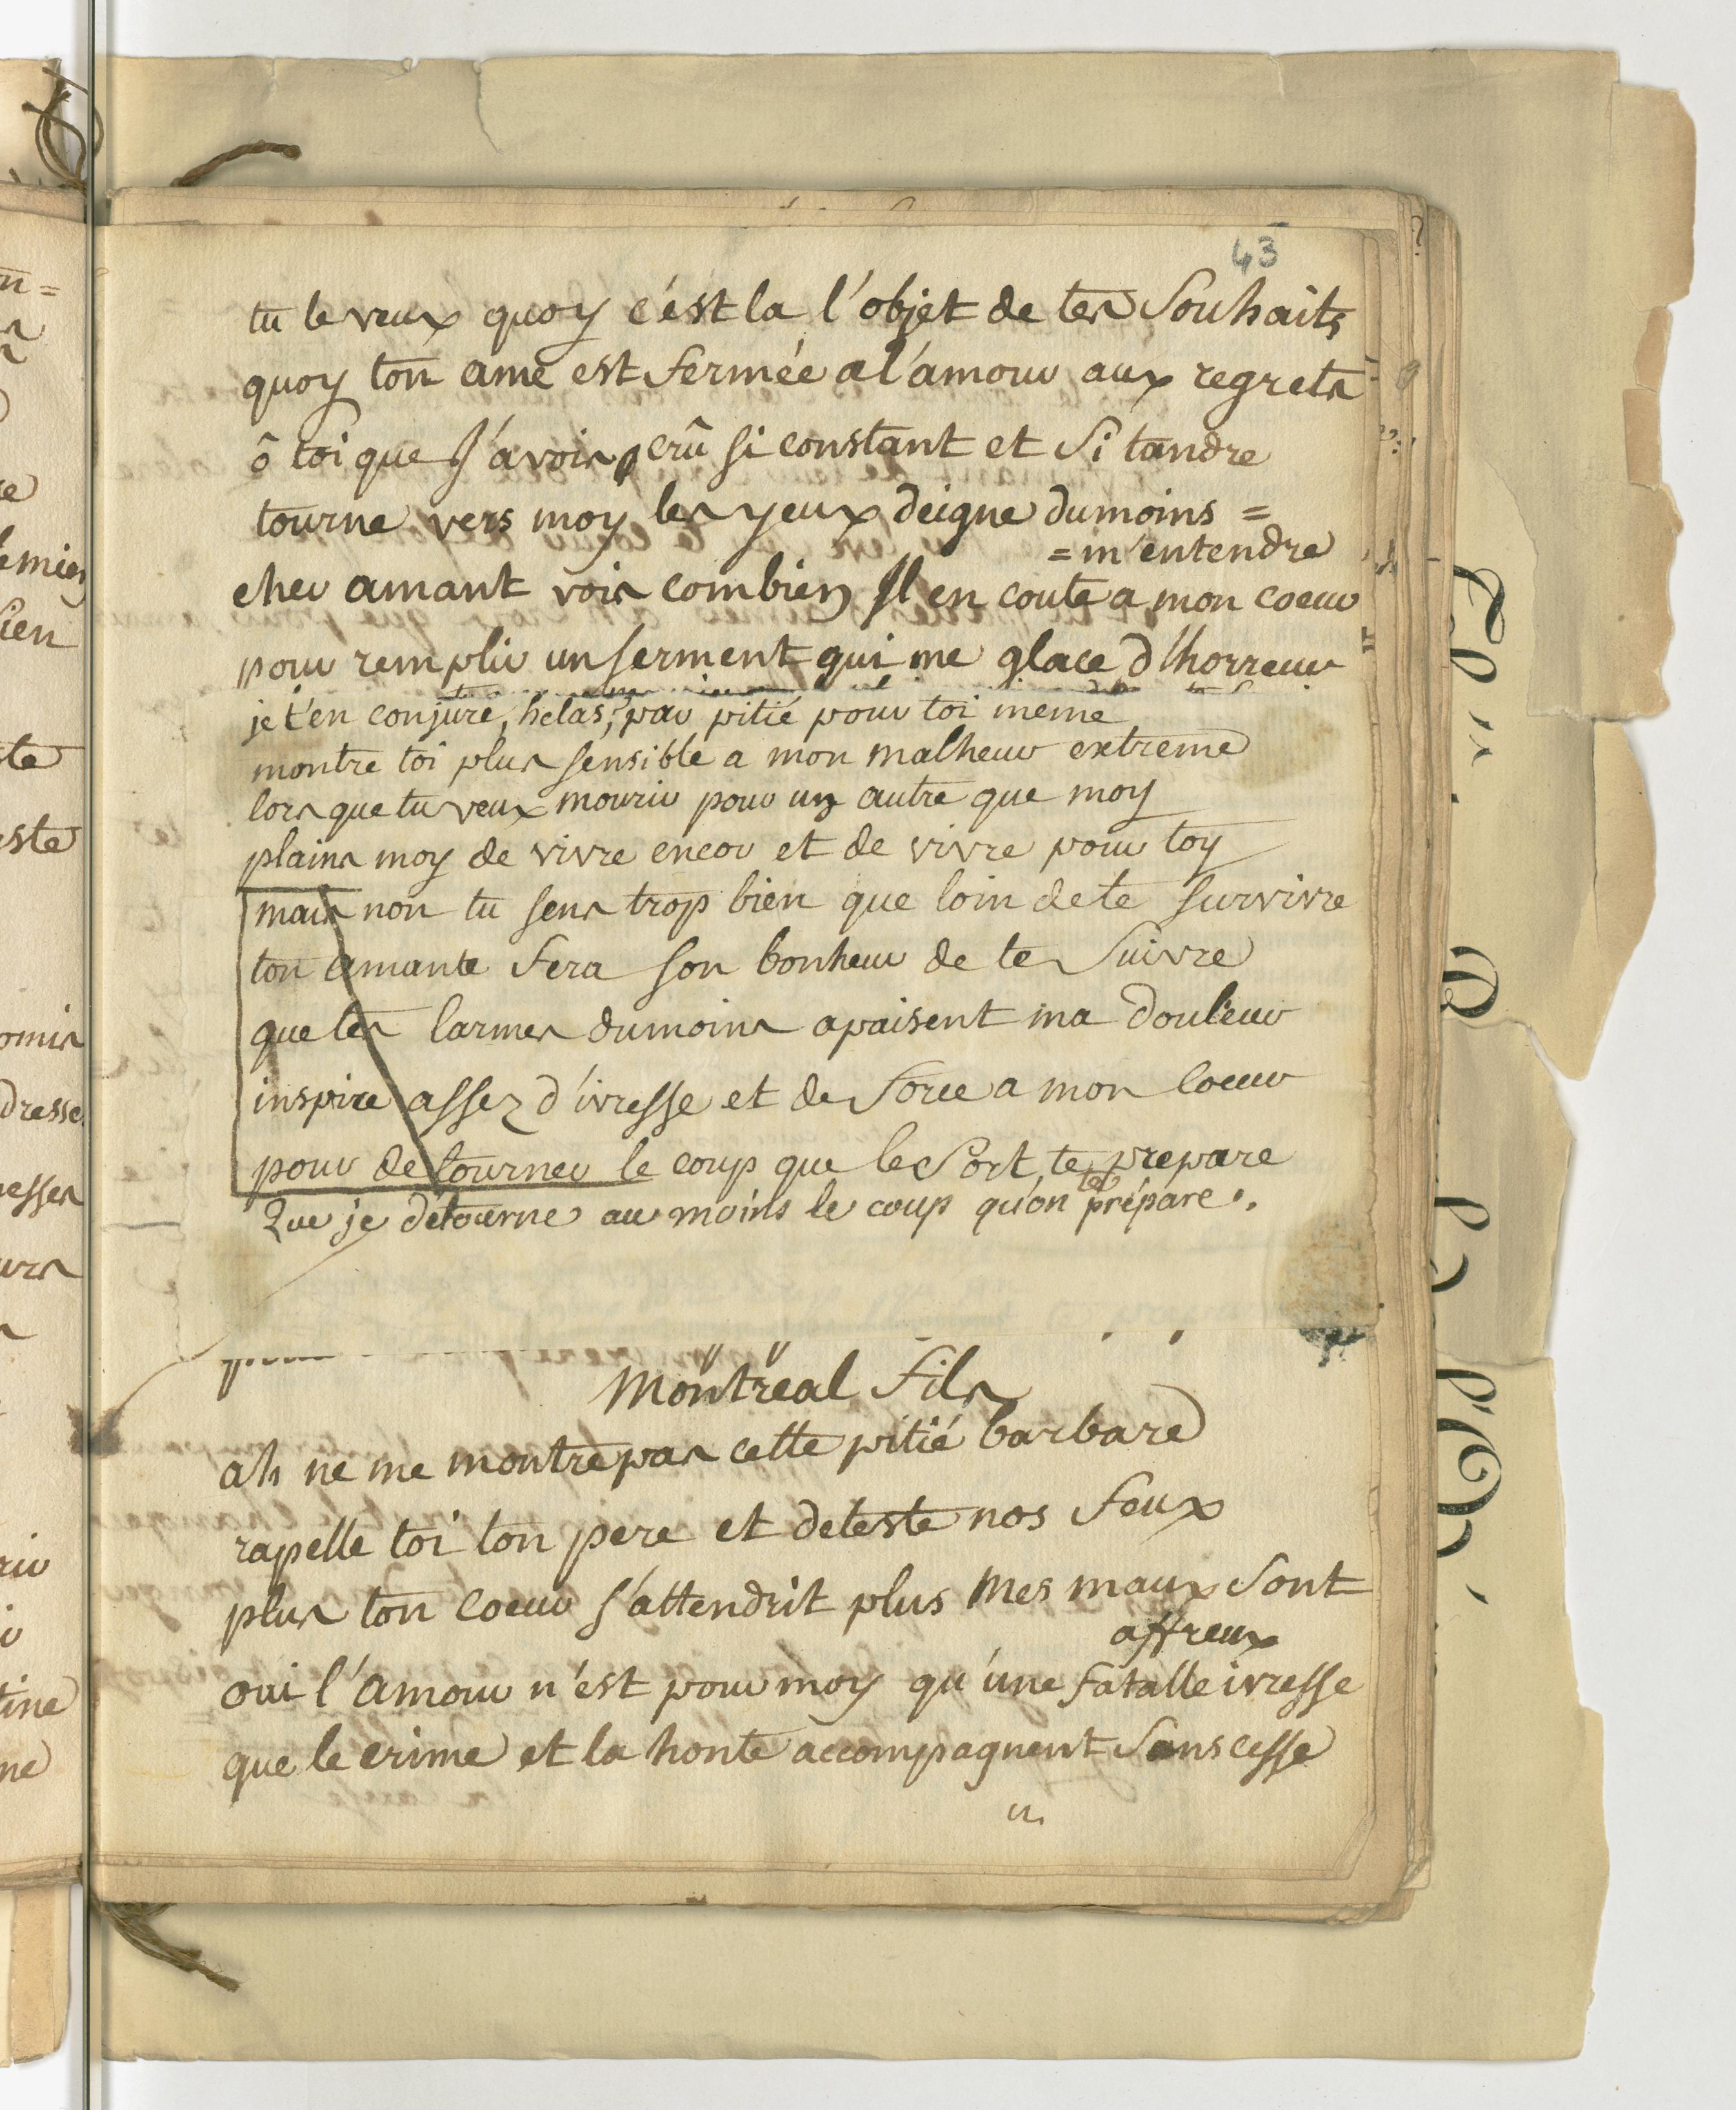 43
tu le veux quoy c'ést la l'objet de tes souhaits
quoy ton ame est fermée a l'amour aux regrets
ô toi que j'avois crû si constant et si tandre
tourne vers moy les yeux deigne dumoins =
= m'entendre
cher amant vois combien Il en coute a mon coeur
pour remplir un serment qui me glace d'horreur
je t'en conjure, helas, par pitié pour toi meme
montre toi plus sensible a mon malheur extreme
lorsque tu veux mourir pour un autre que moy
plains moy de vivre encor et de vivre pour toy
mais non tu sens trop bien que loin de te survivre
ton amante fera son bonheur de te suivre
que tes larmes dumoins apaisent ma douleur
inspire assez d'ivresse et de force a mon coeur
pour detourner le coup que le sort te prepare
Que je détourne au moins le coup qu'on te prépare.
Montreal fils
ah ne me montre pas cette pitié barbare
rapelle toi ton pere et deteste nos feux
plus ton coeur s'attendrit plus mes maux sont
affreux
oui l'amour n'est pour moy qu'une fatalle ivresse
que le crime et la honte accompagnent sans cesse